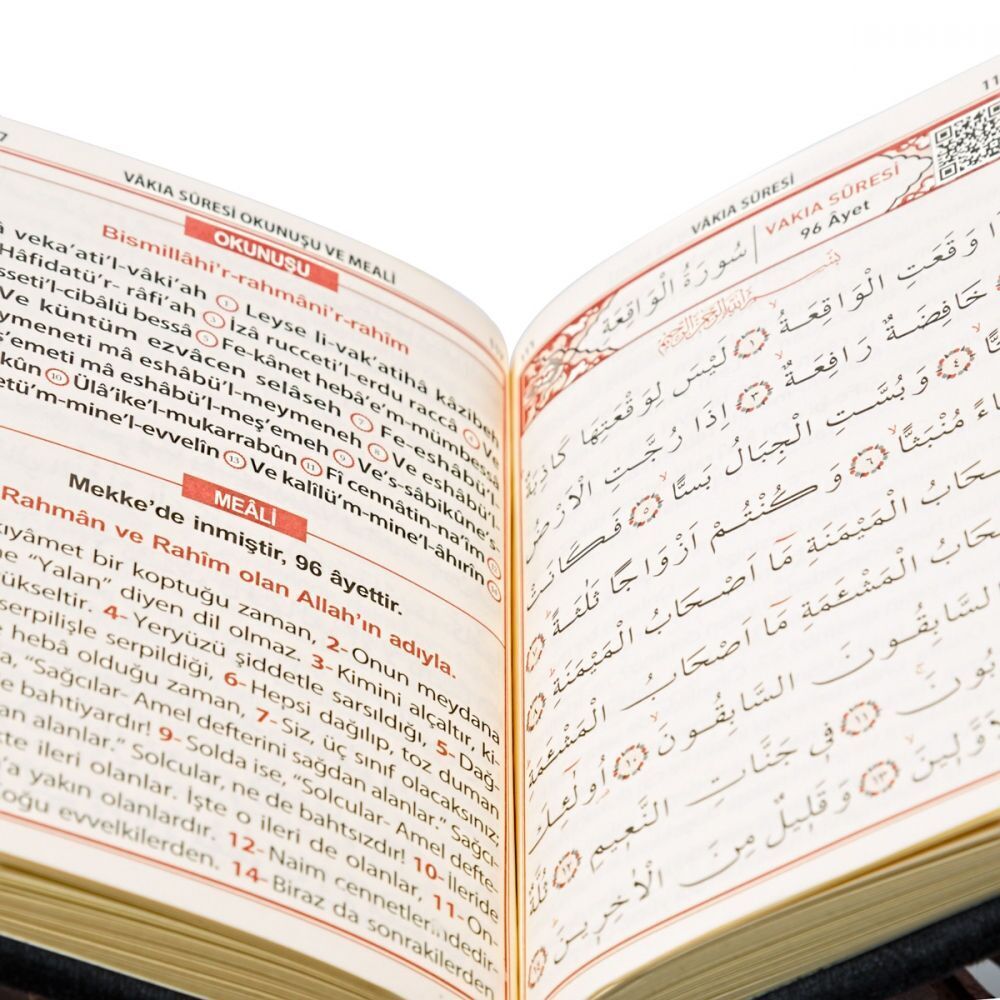 7
VÂKIA SÛRESİ OKUNUŞU VE MEALİ
OKUNUŞU
Bismillâhi'r-rahmâni'r-rahîm
veka'ati'l-vâki'ah 1 Leyse li-vak'atihâ kâzibeh
Hâfidatü'r- râfi'ah 3 İzâ rucceti'l-erdu raccâ 4 Ve
sseti'l-cibâlü bessâ 5 Fe-kânet hebâ'e'm-mümbessâ
Ve küntüm ezvâcen selâseh 7 Fe-eshâbü'l-
ymeneti mâ eshâbü'l-meymeneh 8 Ve eshâbü'l-
ş'emeti mâ eshâbü'l-meş'emeh 9 Ve's-sâbikûne's-
kûn 10 Ülâ'ike'l-mukarrabûn 11 Fî cennâtin-na'îm 12
etü'm-mine'l-evvelîn 13 Ve kalîlü'm-mine'l-âhırîn 14
MEÂLİ
Mekke'de inmiştir, 96 âyettir.
Rahmân ve Rahîm olan Allah'ın adıyla.
kıyâmet bir koptuğu zaman, 2- Onun meydana
ne "Yalan" diyen dil olmaz. 3- Kimini alçaltır, ki-
yükseltir. 4- Yeryüzü şiddetle sarsıldığı, 5- Dağ-
serpilişle serpildiği, 6- Hepsi dağılıp, toz duman
heba olduğu zaman, 7- Siz, üç sınıf olacaksınız;
a, "Sağcılar- Amel defterini sağdan alanlar." Sağcı-
e bahtiyardır! 9- Solda ise, "Solcular- Amel defte-
an alanlar." Solcular, ne de bahtsızdır! 10- İleride
te ileri olanlar. İşte o ileri de olanlar, 11- On-
'a yakın olanlardır. 12- Naim cennetlerindedir-
Çoğu evvelkilerden. 14- Biraz da sonrakilerden
11
VÂKIA SÛRESİ
سُورَةُ الْوَاقِعَةِ
VAKIA SÛRESİ
96 Âyet
بِسْمِ اللّٰهِ الرَّحْمٰنِ الرَّحِيمِ
ا وَقَعَتِ الْوَاقِعَةُ ١ لَيْسَ لِوَقْعَتِهَا كَاذِبَةٌ
خَافِضَةٌ رَافِعَةٌ ٣ اِذَا رُجَّتِ الْاَرْضُ
٤ وَبُسَّتِ الْجِبَالُ بَسًّا ٥ فَكَانَتْ
اءً مُنْبَثًّا ٦ وَكُنْتُمْ اَزْوَاجًا ثَلٰثَةً ٧
حَابُ الْمَيْمَنَةِ مَٓا اَصْحَابُ الْمَيْمَنَةِ ٨
حَابُ الْمَشْـَٔمَةِ مَٓا اَصْحَابُ الْمَشْـَٔمَةِ
السَّابِقُونَ السَّابِقُونَ ١٠ اُولٰٓئِكَ
بُونَ ١١ فِي جَنَّاتِ النَّعِيمِ ١٢ ثُلَّةٌ
اْلاَوَّلِينَ ١٣ وَقَلِيلٌ مِنَ الْاٰخِرِينَ ١٤